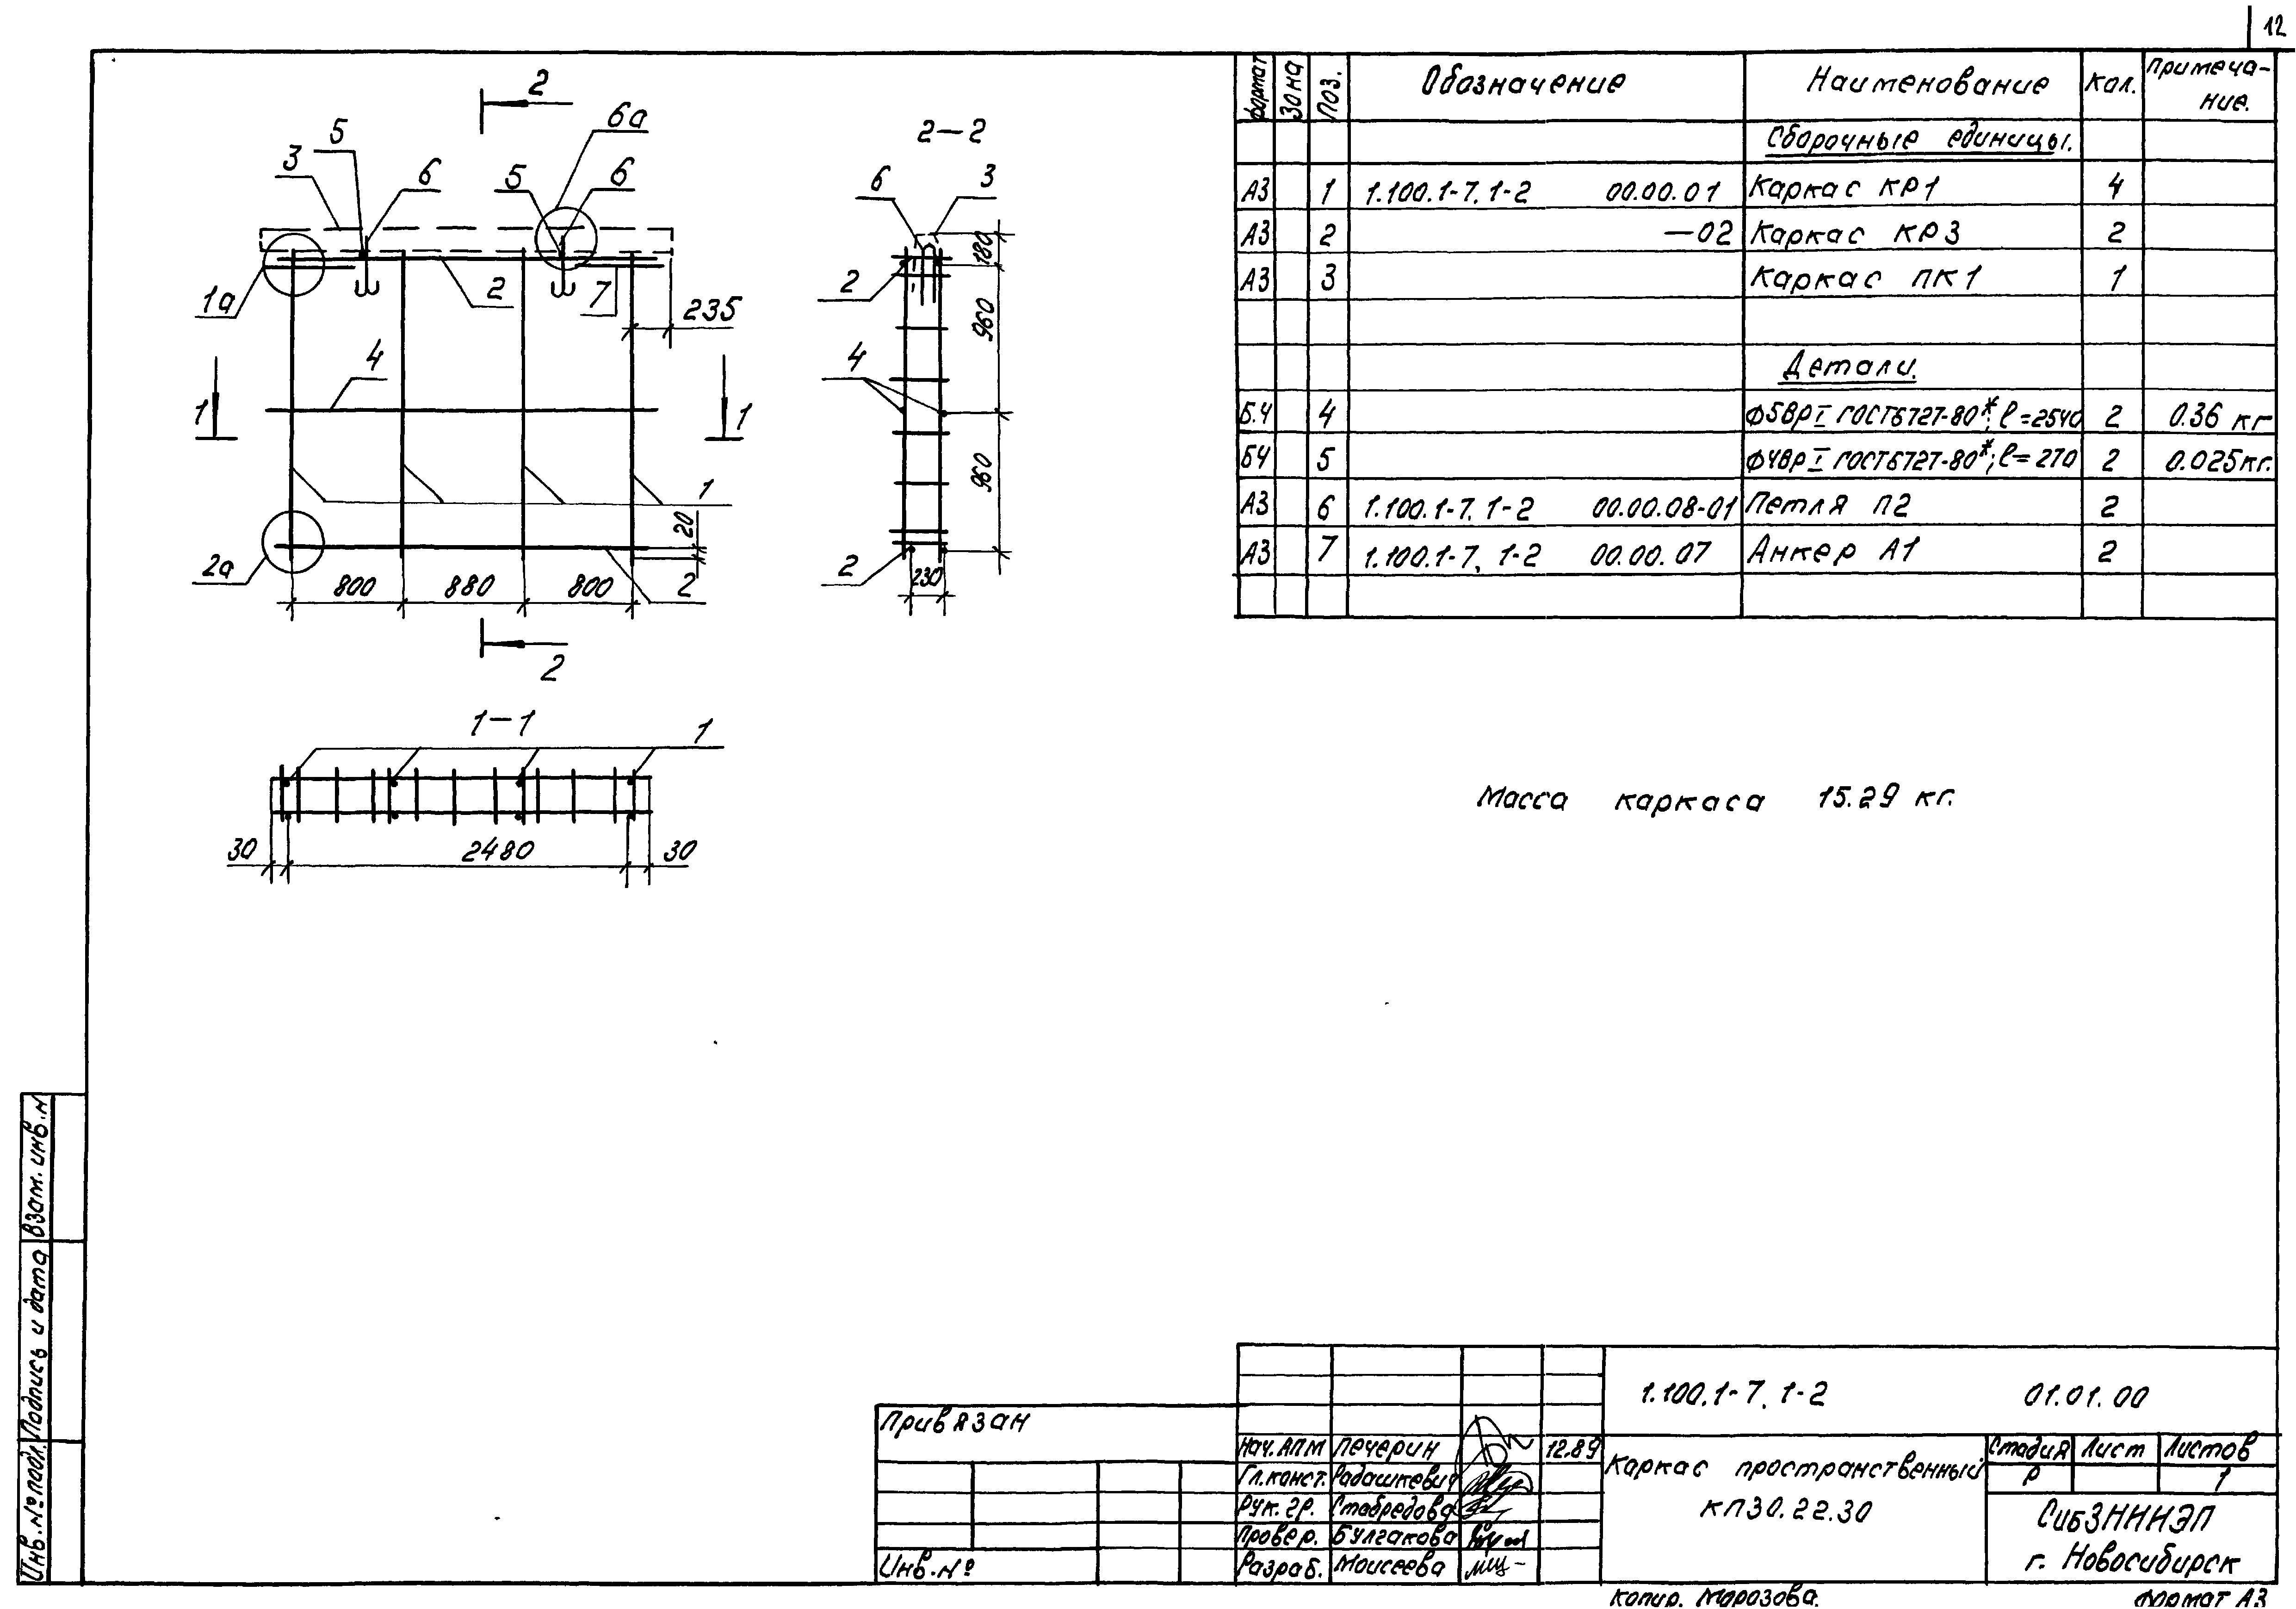 12
2
6а
5
3
6
5
6
1а
2
7
235
4
1
1
1
20
2а
2
800
880
800
2
2-2
6
3
180
2
960
4
960
2
230
1-1
1
30
2480
30
Формат
Зона
Поз.
Обозначение
Наименование
Кол.
Примеча-
ние.
Сборочные единицы.
А3 1 1.100.1-7. 1-2 00.00.01 Каркас КР1 4
А3 2 —02 Каркас КР3 2
А3 3 Каркас ПК1 1
Детали.
Б.Ч 4 Ф5ВрI ГОСТ6727-80*; ℓ=2540 2 0.36 кг
БЧ 5 Ф4ВрI ГОСТ6727-80*; ℓ=270 2 0.025кг.
А3 6 1.100.1-7. 1-2 00.00.08-01 Петля П2 2
А3 7 1.100.1-7. 1-2 00.00.07 Анкер А1 2
Масса каркаса 15.29 кг.
Взам. инв. N
Подпись и дата
Инв. № подл.
Привязан
Инв. №
1.100.1-7. 1-2 01.01.00
Нач. АПМ Печерин 12.89
Гл. конст. Радашкевич
Рук. гр. Стабредова
Провер. Булгакова
Разраб. Моисеева
Каркас пространственный
КП30.22.30
Стадия Лист Листов
Р 1
СибЗНИИЭП
г. Новосибирск
Копир. Морозова.
Формат А3